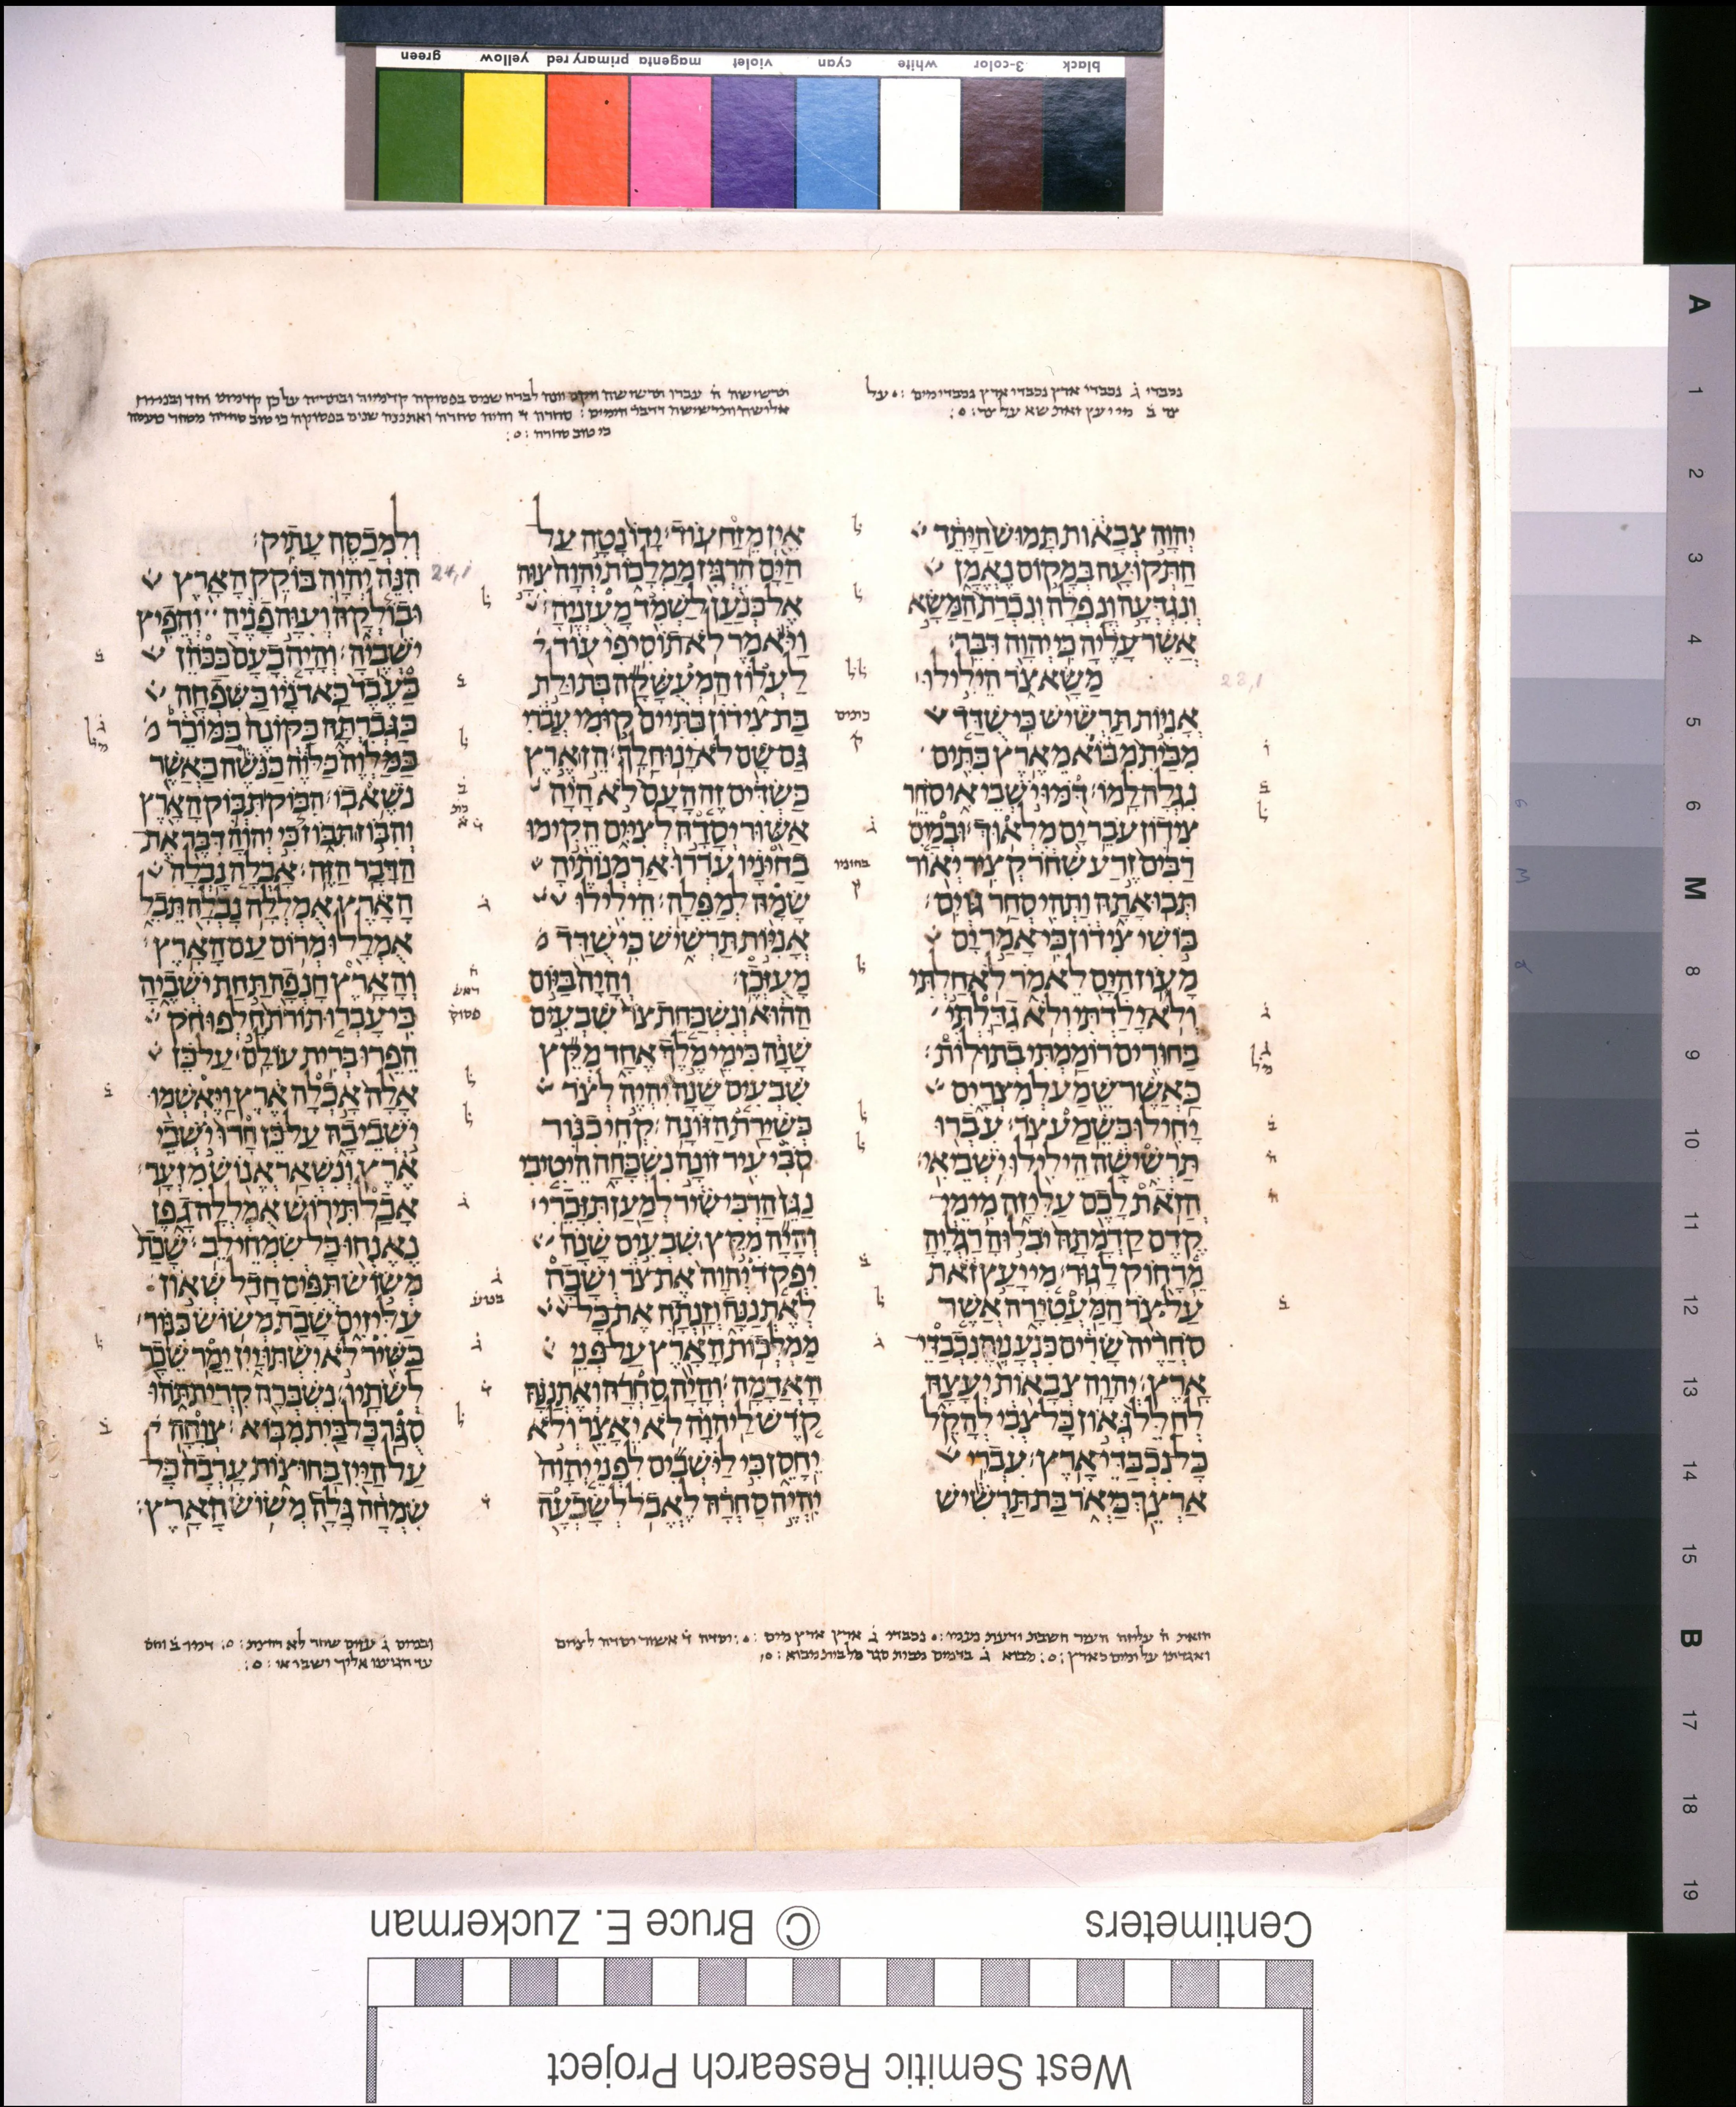 green yellow primary red magenta violet cyan white 3-color black
יְהוָה צְבָאוֹת תָּמוּשׁ הַיָּתֵד
הַתְּקוּעָה בְּמָקוֹם נֶאֱמָן
וְנִגְדְּעָה וְנָפְלָה וְנִכְרַת הַמַּשָּׂא
אֲשֶׁר עָלֶיהָ כִּי יְהוָה דִּבֵּר׃
מַשָּׂא צֹר הֵילִילוּ
אֳנִיּוֹת תַּרְשִׁישׁ כִּי שֻׁדַּד
מִבַּיִת מִבּוֹא מֵאֶרֶץ כִּתִּים
נִגְלָה לָמוֹ׃ דֹּמּוּ יֹשְׁבֵי אִי סֹחֵר
צִידוֹן עֹבֵר יָם מִלְאוּךְ׃ וּבְמַיִם
רַבִּים זֶרַע שִׁחֹר קְצִיר יְאוֹר
תְּבוּאָתָהּ וַתְּהִי סְחַר גּוֹיִם׃
בּוֹשִׁי צִידוֹן כִּי אָמַר יָם
מָעוֹז הַיָּם לֵאמֹר לֹא חַלְתִּי
וְלֹא יָלַדְתִּי וְלֹא גִדַּלְתִּי
בַּחוּרִים רוֹמַמְתִּי בְתוּלוֹת׃
כַּאֲשֶׁר שֵׁמַע לְמִצְרָיִם
יָחִילוּ כְּשֵׁמַע צֹר׃ עִבְרוּ
תַּרְשִׁישָׁה הֵילִילוּ יֹשְׁבֵי אִי׃
הֲזֹאת לָכֶם עַלִּיזָה מִימֵי
קֶדֶם קַדְמָתָהּ יֹבִלוּהָ רַגְלֶיהָ
מֵרָחוֹק לָגוּר׃ מִי יָעַץ זֹאת
עַל צֹר הַמַּעֲטִירָה אֲשֶׁר
סֹחֲרֶיהָ שָׂרִים כִּנְעָנֶיהָ נִכְבַּדֵּי
אָרֶץ׃ יְהוָה צְבָאוֹת יְעָצָהּ
לְחַלֵּל גְּאוֹן כָּל צְבִי לְהָקֵל
כָּל נִכְבַּדֵּי אָרֶץ׃ עִבְרִי
אַרְצֵךְ כַּיְאֹר בַּת תַּרְשִׁישׁ
אֵין מֵזַח עוֹד׃ יָדוֹ נָטָה עַל
הַיָּם הִרְגִּיז מַמְלָכוֹת יְהוָה צִוָּה
אֶל כְּנַעַן לַשְׁמִד מָעֻזְנֶיהָ׃
וַיֹּאמֶר לֹא תוֹסִיפִי עוֹד
לַעְלוֹז הַמְעֻשָּׁקָה בְּתוּלַת
בַּת צִידוֹן כִּתִּיים קוּמִי עֲבֹרִי
גַּם שָׁם לֹא יָנוּחַ לָךְ׃ הֵן אֶרֶץ
כַּשְׂדִּים זֶה הָעָם לֹא הָיָה
אַשּׁוּר יְסָדָהּ לְצִיִּים הֵקִימוּ
בַחִינָיו עֹרְרוּ אַרְמְנוֹתֶיהָ
שָׂמָהּ לְמַפֵּלָה׃ הֵילִילוּ
אֳנִיּוֹת תַּרְשִׁישׁ כִּי שֻׁדַּד
מָעֻזְּכֶן׃ וְהָיָה בַּיּוֹם
הַהוּא וְנִשְׁכַּחַת צֹר שִׁבְעִים
שָׁנָה כִּימֵי מֶלֶךְ אֶחָד מִקֵּץ
שִׁבְעִים שָׁנָה יִהְיֶה לְצֹר
כְּשִׁירַת הַזּוֹנָה׃ קְחִי כִנּוֹר
סֹבִּי עִיר זוֹנָה נִשְׁכָּחָה הֵיטִיבִי
נַגֵּן הַרְבִּי שִׁיר לְמַעַן תִּזָּכֵרִי׃
וְהָיָה מִקֵּץ שִׁבְעִים שָׁנָה
יִפְקֹד יְהוָה אֶת צֹר וְשָׁבָה
לְאֶתְנַנָּה וְזָנְתָה אֶת כָּל
מַמְלְכוֹת הָאָרֶץ עַל פְּנֵי
הָאֲדָמָה׃ וְהָיָה סַחְרָהּ וְאֶתְנַנָּהּ
קֹדֶשׁ לַיהוָה לֹא יֵאָצֵר וְלֹא
יֵחָסֵן כִּי לַיֹּשְׁבִים לִפְנֵי יְהוָה
יִהְיֶה סַחְרָהּ לֶאֱכֹל לְשָׂבְעָה
וְלִמְכַסֶּה עָתִיק׃
הִנֵּה יְהוָה בּוֹקֵק הָאָרֶץ
וּבוֹלְקָהּ וְעִוָּה פָנֶיהָ וְהֵפִיץ
יֹשְׁבֶיהָ׃ וְהָיָה כָעָם כַּכֹּהֵן
כַּעֶבֶד כַּאדֹנָיו כַּשִּׁפְחָה
כַּגְּבִרְתָּהּ כַּקּוֹנֶה כַּמּוֹכֵר
כַּמַּלְוֶה כַּלֹּוֶה כַּנֹּשֶׁה כַּאֲשֶׁר
נֹשֶׁא בוֹ׃ הִבּוֹק תִּבּוֹק הָאָרֶץ
וְהִבּוֹז תִּבּוֹז כִּי יְהוָה דִּבֶּר אֶת
הַדָּבָר הַזֶּה׃ אָבְלָה נָבְלָה
הָאָרֶץ אֻמְלְלָה נָבְלָה תֵּבֵל
אֻמְלָלוּ מְרוֹם עַם הָאָרֶץ׃
וְהָאָרֶץ חָנְפָה תַּחַת יֹשְׁבֶיהָ
כִּי עָבְרוּ תוֹרֹת חָלְפוּ חֹק
הֵפֵרוּ בְּרִית עוֹלָם׃ עַל כֵּן
אָלָה אָכְלָה אֶרֶץ וַיֶּאְשְׁמוּ
יֹשְׁבֵי בָהּ עַל כֵּן חָרוּ יֹשְׁבֵי
אֶרֶץ וְנִשְׁאַר אֱנוֹשׁ מִזְעָר׃
אָבַל תִּירוֹשׁ אֻמְלְלָה גָפֶן
נֶאֶנְחוּ כָּל שִׂמְחֵי לֵב׃ שָׁבַת
מְשׂוֹשׂ תֻּפִּים חָדַל שְׁאוֹן
עַלִּיזִים שָׁבַת מְשׂוֹשׂ כִּנּוֹר׃
בַּשִּׁיר לֹא יִשְׁתּוּ יָיִן יֵמַר שֵׁכָר
לְשֹׁתָיו׃ נִשְׁבְּרָה קִרְיַת תֹּהוּ
סֻגַּר כָּל בַּיִת מִבּוֹא׃ צְוָחָה
עַל הַיַּיִן בַּחוּצוֹת עָרְבָה כָּל
שִׂמְחָה גָּלָה מְשׂוֹשׂ הָאָרֶץ׃
23,1
24,1
A 1 2 3 4 5 6 M 8 9 10 11 12 13 14 15 B 17 18 19
Centimeters
© Bruce E. Zuckerman
West Semitic Research Project